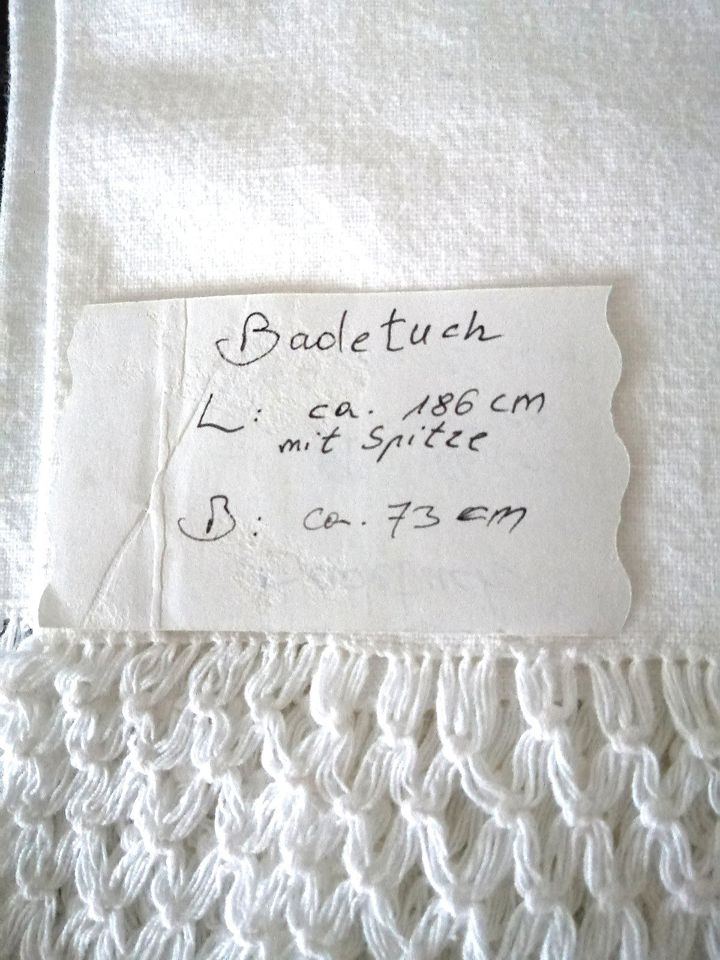 Badetuch
L: ca. 186 cm
mit Spitze
B: ca. 73 cm